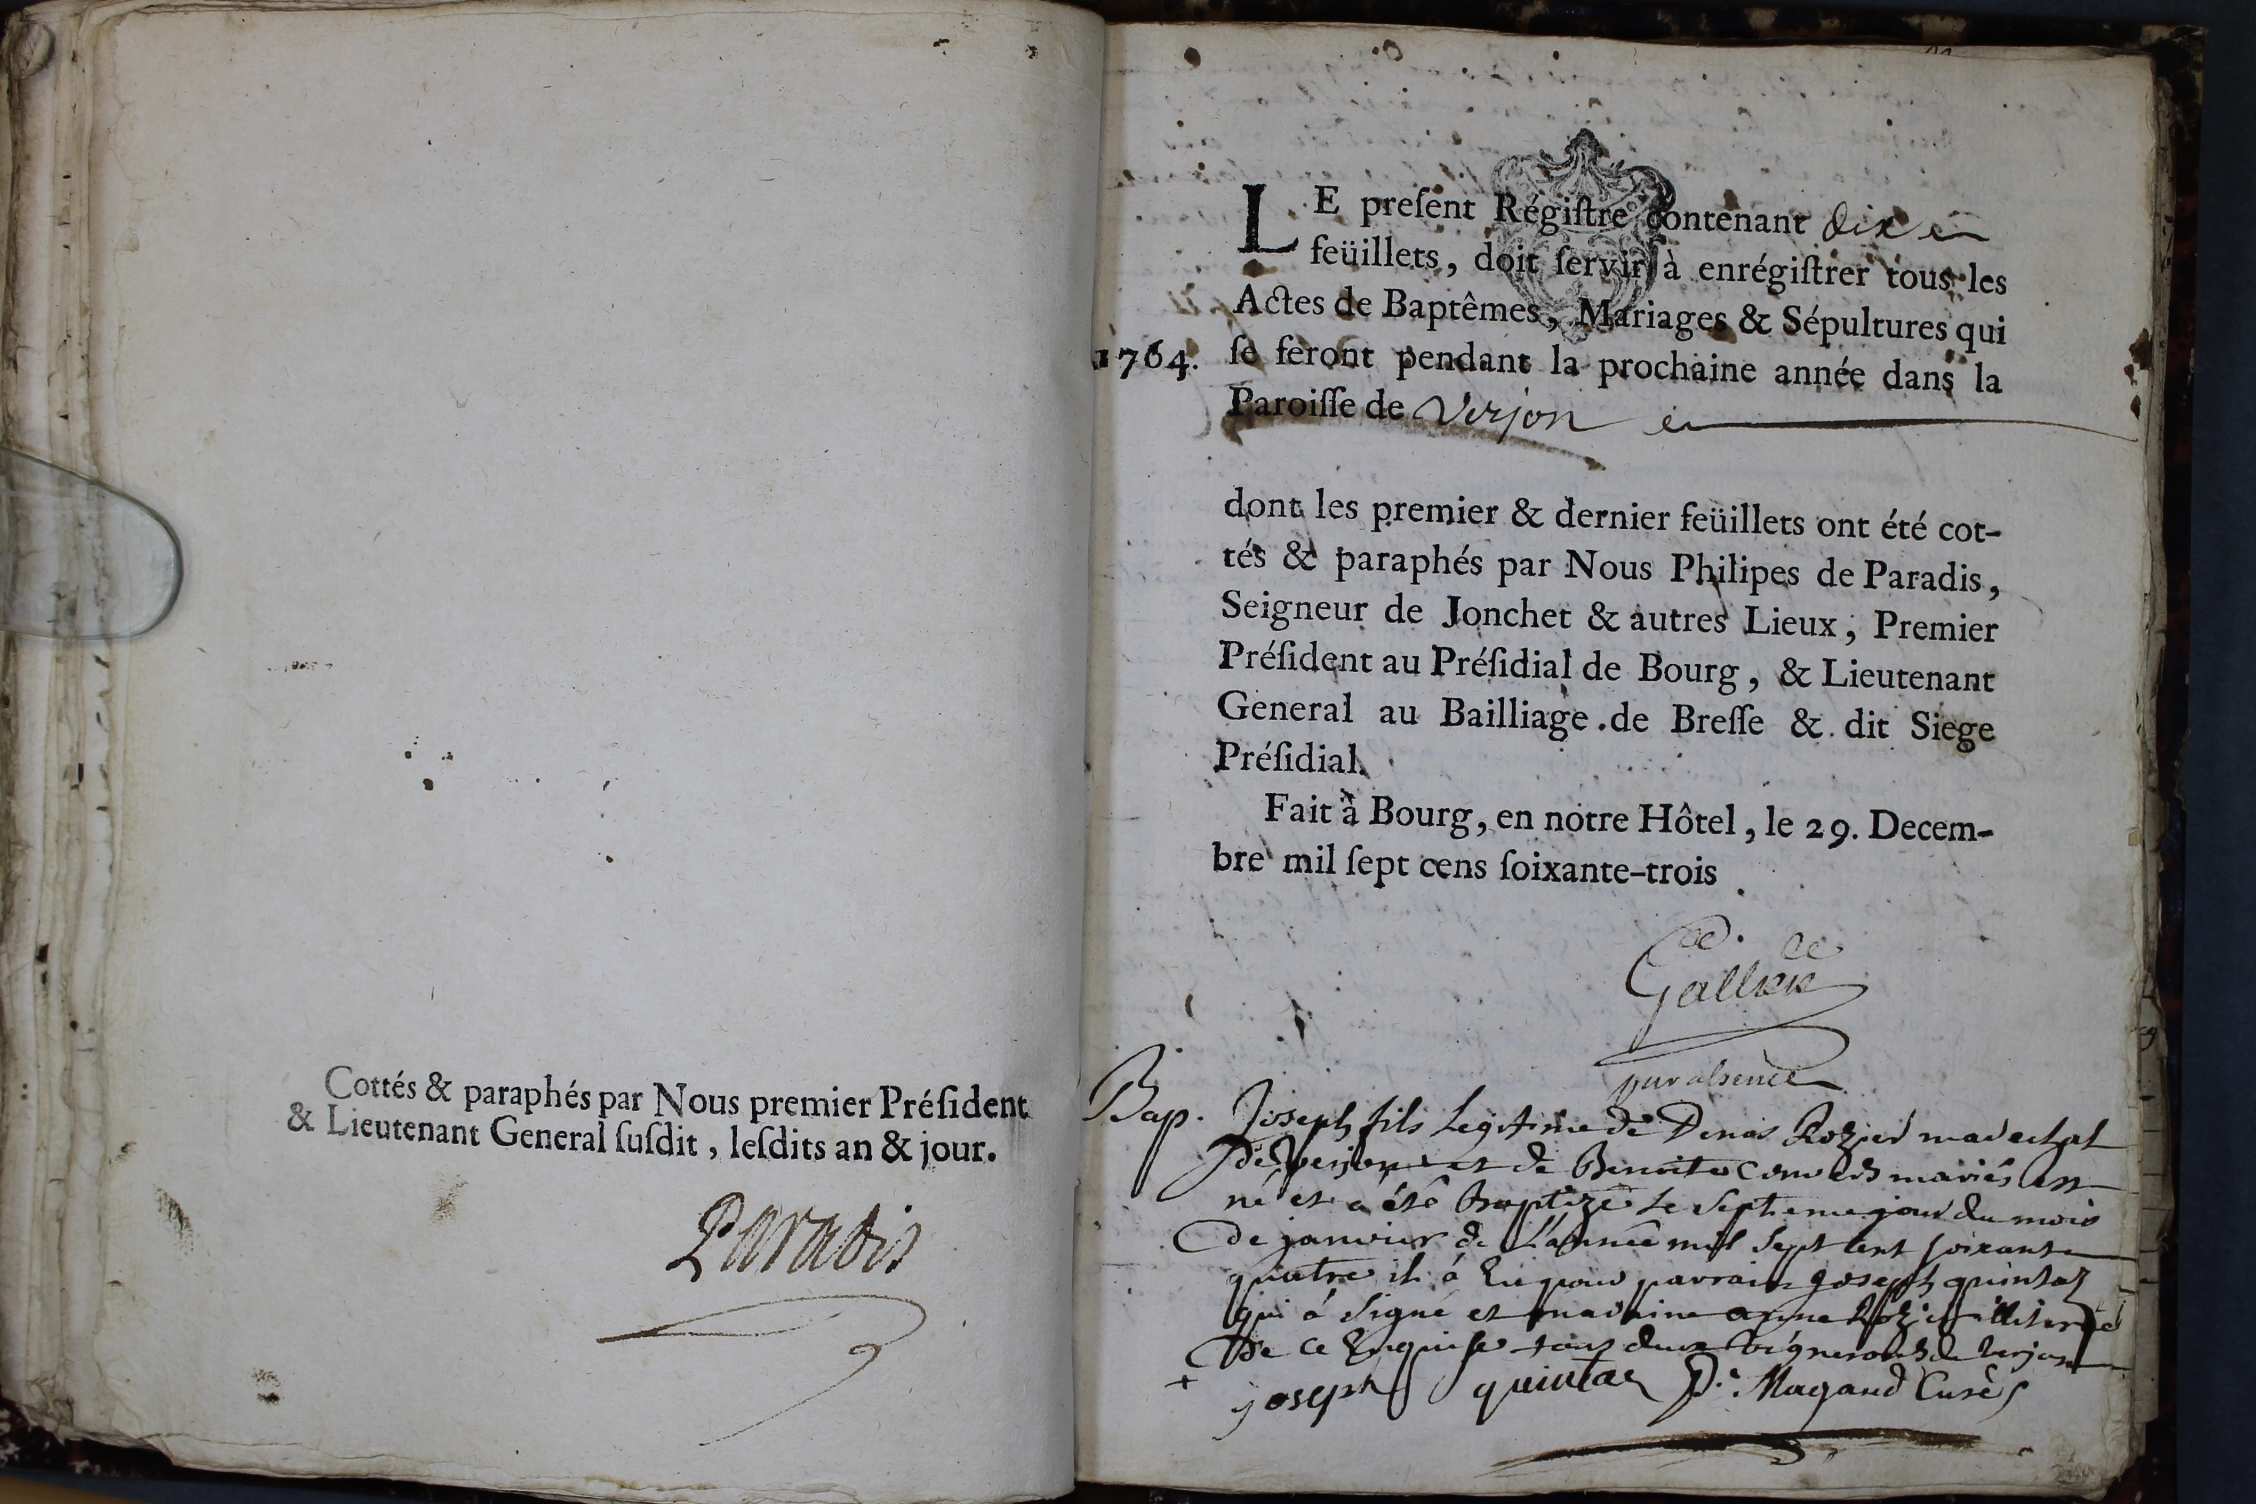 Cottés & paraphés par Nous premier Préſident
& Lieutenant General ſuſdit, leſdits an & jour.
Paradis
LE preſent Régiſtre contenant dix
feüillets, doit ſervir à enrégiſtrer tous les
Actes de Baptêmes, Mariages & Sépultures qui
1764. ſe feront pendant la prochaine année dans la
Paroiſſe de Verjon
dont les premier & dernier feüillets ont été cot-
tés & paraphés par Nous Philipes de Paradis,
Seigneur de Jonchet & autres Lieux, Premier
Préſident au Préſidial de Bourg, & Lieutenant
General au Bailliage de Breſſe & dit Siege
Préſidial.
Fait à Bourg, en notre Hôtel, le 29. Decem-
bre mil ſept cens ſoixante-trois
par absence
Bap. Joseph fils Legitime de Denas Rozier marechal
de Verjon et de Benoite mariés est
né et a été Baptizé le Septieme jour du mois
de janvier de L'année mil Sept cent soixante
quatre il á Eu pour parrain joseph quintaz
qui á Signé et maraine anne Rozier illiteree
De ce Enquise tous deux vignerons de Verjon
joseph quintaz Magaud Curé